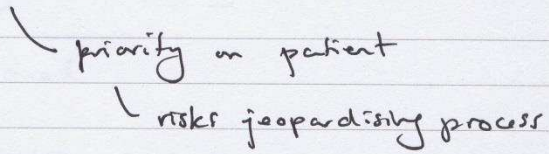 priority on patient
risks jeopardising process